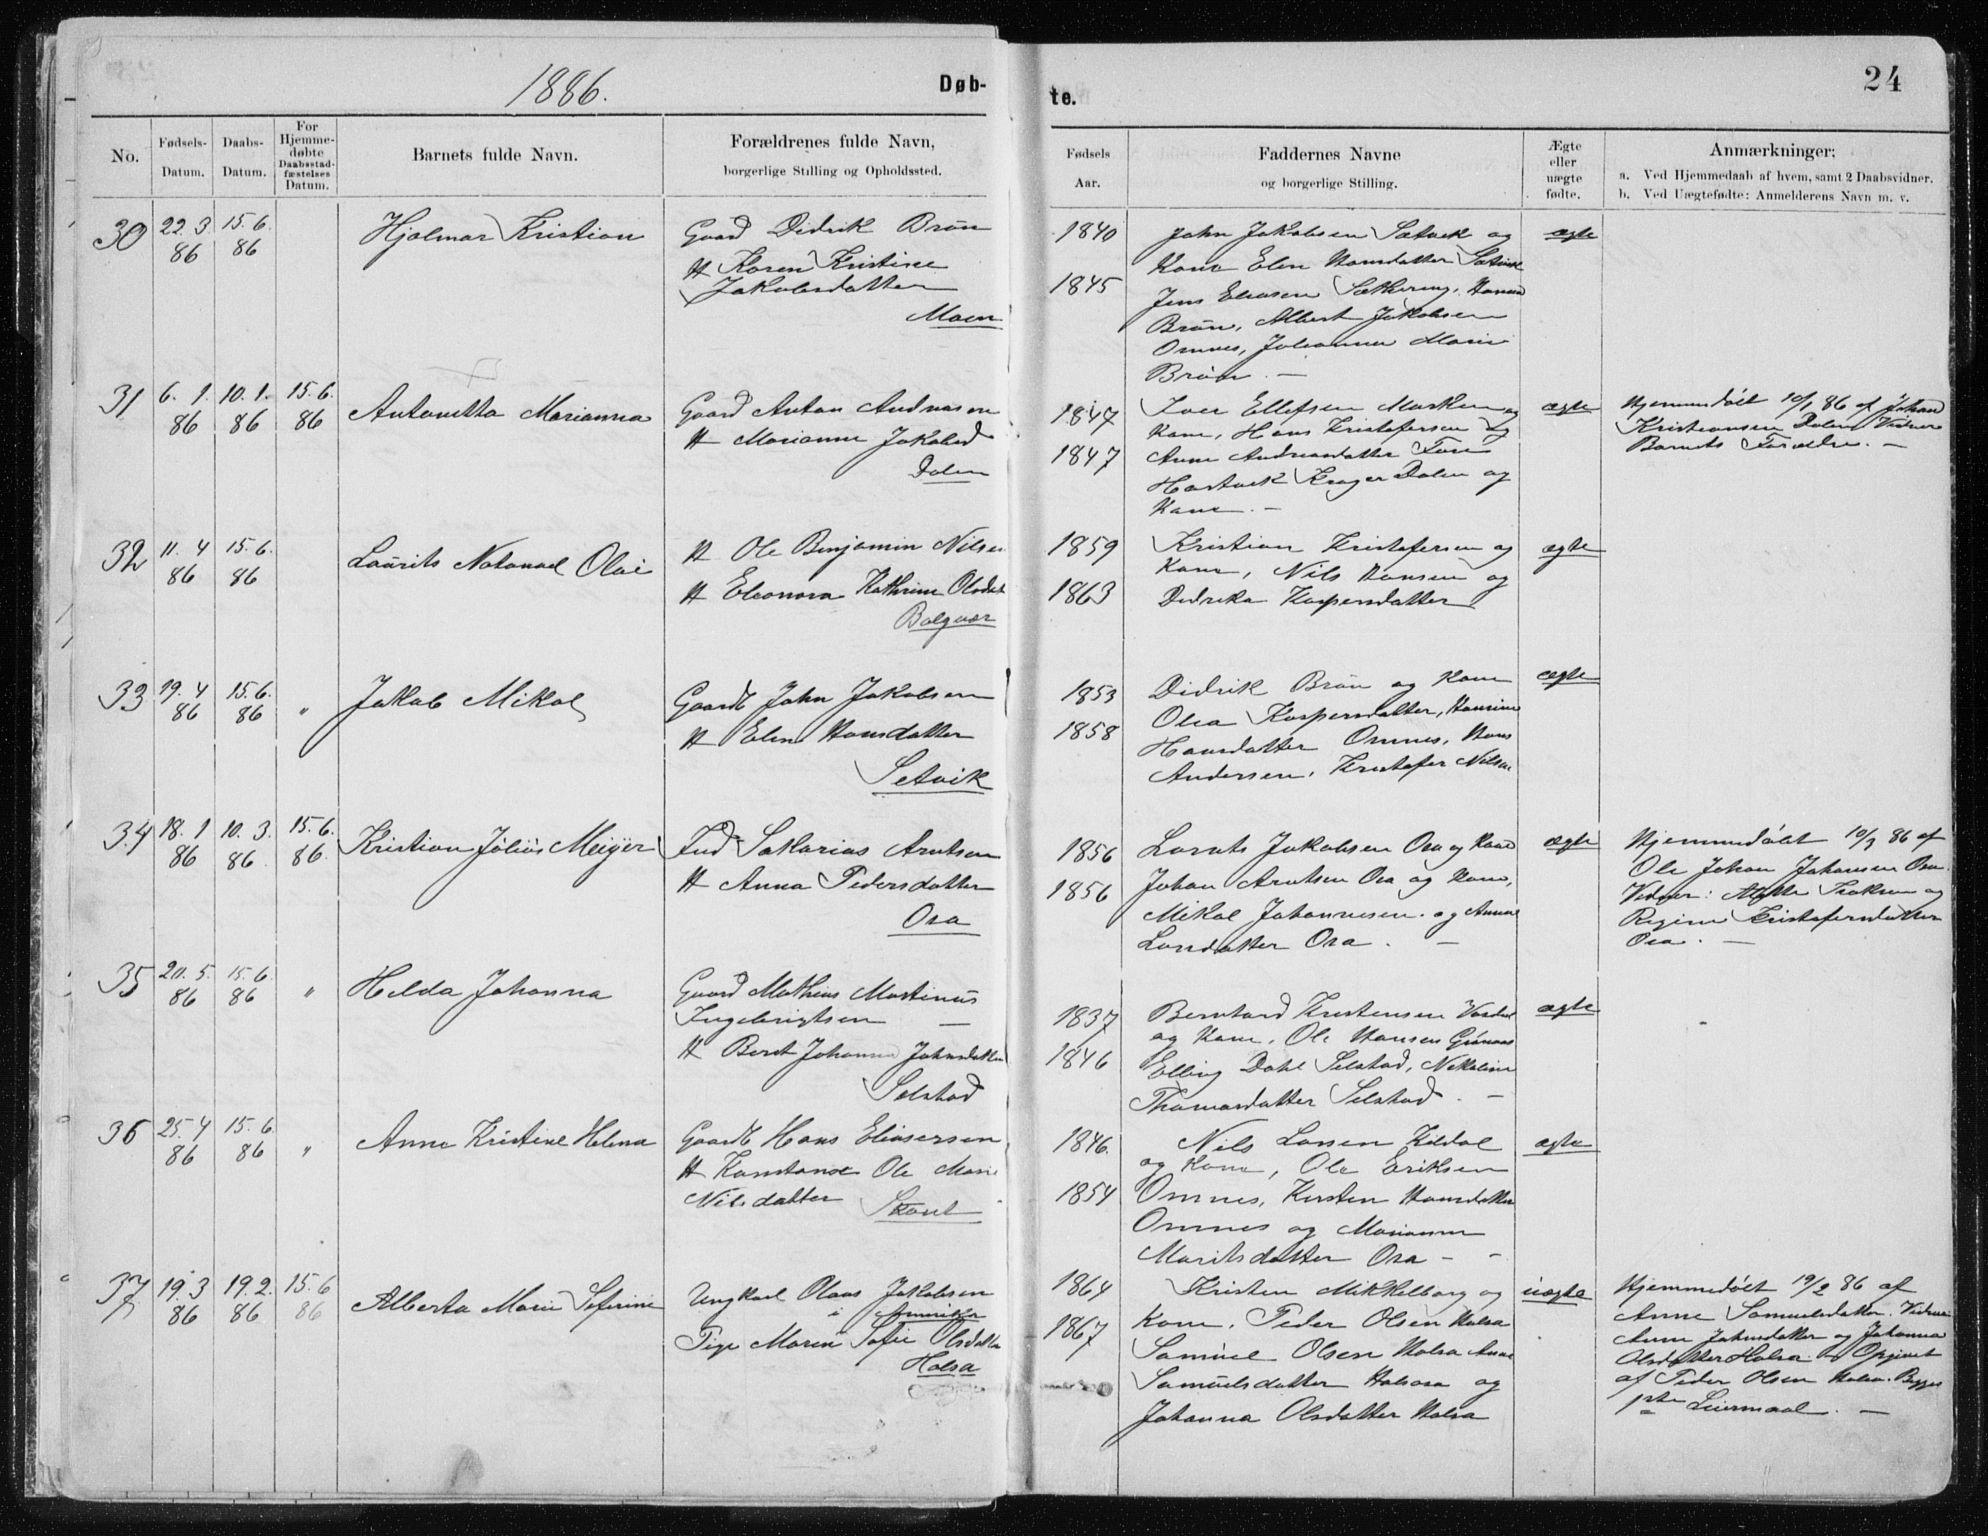 1886.
Døb-
te.
24
No.
Fødsels-
Datum.
Daabs-
Datum.
For
Hjemme-
døbte
Daabsstad-
fæstelses
Datum.
Barnets fulde Navn.
Forældrenes fulde Navn,
borgerlige Stilling og Opholdssted.
Fødsels
Aar.
Faddernes Navne
og borgerlige Stilling.
Ægte
eller
uægte
fødte.
Anmærkninger:
a. Ved Hjemmedaab af hvem, samt 2 Daabsvidner.
b. Ved Uægtefødte: Anmelderens Navn m. v.
30
22. 3
86
15. 6.
86
Hjalmar Kristian
Gaard Didrik Brøn
H Karen Kristine
Jakobsdatter
Moen
1840
1845
John Jakobsen Sætvik og
Kone Elen Hansdatter Sætvik
Jens Eliasen
Brøn, Albert Jakobsen
Omnes, Johanna Marie
Brøn. —
ægte
31
6. 1.
86
10. 1.
86
15. 6.
86
Antonetta Marianna
Gaard Anton Andreasen
H Marianne Jakobsd
Dalen
1847
1847
Iver Ellefsen og
Kone, Hans Kristofersen og
Anne Andreasdatter
Hartvik Dalen og
Kone. —
ægte
Hjemmedøbt 10/1 86 af Johan
Kristiansen Dalen Vidner
Barnets Forældre. —
32
11. 4
86
15. 6.
86
Laurits Natanael Olai
H Ole Benjamin Nilsen
H Eleonora Kathrine Olsdat
Bolgvær
1859
1863
Kristian Kristofersen og
Kone, Nils Hansen og
Didrika Kaspersdatter
ægte
33
19. 4
86
15. 6.
86
"
Jakob Mikal
Gaardb John Jakobsen
H Elen Hansdatter
Setvik
1853
1858
Didrik Brøn og Kone
Olea Kaspersdatter, Hansine
Hansdatter Omnes, Hans
Andersen, Kristofer Nilsen
ægte
34
18. 1
86
10. 3.
86.
15. 6.
86.
Kristian Júliús Meijer
Ind Sakarias Arntsen
H Anna Pedersdatter
Osa
1856
1856
Jakobsen Osa og Kone
Johan Arntsen Osa og Kone,
Mikal Johannesen. og Anna
Larsdatter Osa. —
ægte
Hjemmedøbt 10/3 86 af
Ole Johan Johansen Osa.
Vidner: Isaksen og
Regine Kristofersdatter
Osa. —
35
20. 5.
86
15. 6.
86
"
Helda Johanna
Gaard Mathias Martinus
Ingebrigtsen —
H Beret Johanna Johnsdatter
Selstad
1837
1846
Berntard Kristensen
og Kone, Ole Hansen Grønaas
Elling Dahl Selstad, Nikoline
Thomasdatter Selstad. —
ægte
36
25. 4
86
15. 6.
86
"
Anna Kristine Helena
Gaardb Hans Eliasersen
H Konstanse Ole Marie
Nilsdatter
1846.
1854
Nils Larsen Kildal
og Kone, Ole Eriksen
Omnes, Kirsten Hansdatter
Omnes og Marianne
Moritsdatter Osa — -
ægte
37
19. 3
86
19. 2.
86
15. 6
86
Alberta Marie Seferine
Ungkarl Olaus Jakobsen
i Amerika
Pige Maren Sofie Olsdatter
Halsa
1864
1867
Kristen Mikkelborg og
Kone, Peder Olsen Halsa
Samúel Olsen Halsa Anne
Samúelsdatter Halsosa og
Johanna Olsdatter Halsa
úægte
Hjemmedøbt 19/2 86 af
Anne Samuelsdatter. Vidner
Anne Johnsdatter og Johanna
Olsdatter Halsa. Opgivet
af Peder Olsen Halsa. Begges
1ste Leiermaal. —